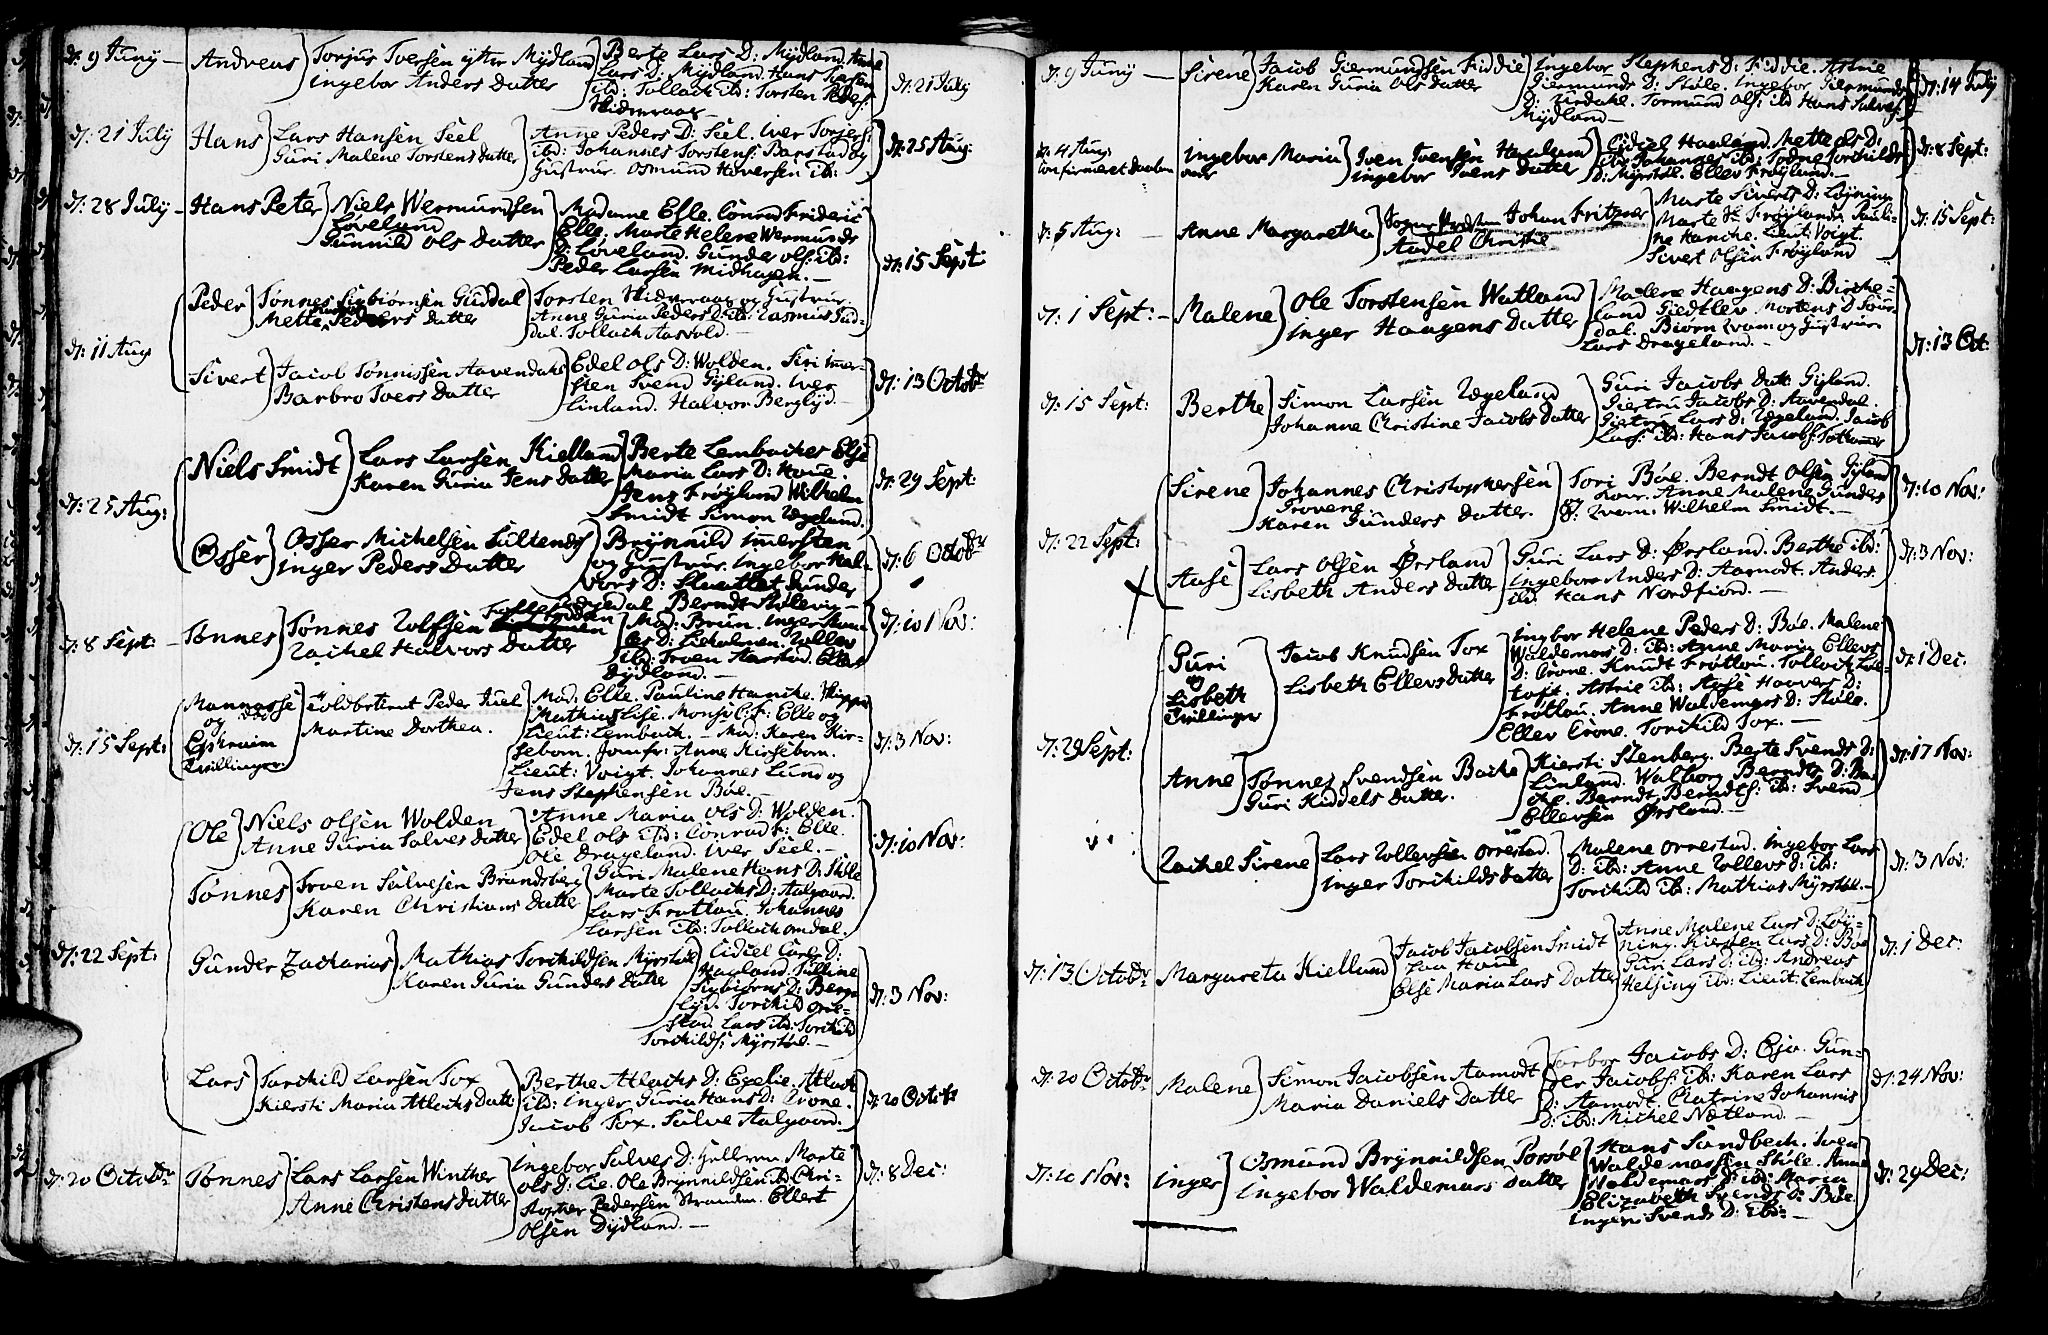 d: 9 Juny — Andreas
Torjus Iversen ytter Mydland
Ingebor Anders Datter
Berte Lars D: Mydland. Anne
Lars D: Mydland. Hans Larsen
ibd: Tollack ib: Torsten Peders:
d: 21 July
d: 21 July Hans
Lars Hansen Seel
Guri Malene Torstens Datter
Anne Peders D: Seel. Iver Torgers:
ibd: Johannes Torstens: Barstad og
Hustrue. Osmund Haversen ib:
d: 25 Aug:
d: 28 July — Hans Peter
Niels Wermundsen
Løveland
Gunnild Ols Datter
Madame Elle. Conrad Frideric
Elle. Marte Helene Wermunds
D: Løveland. Gunder Ols: ib:
Peder Larsen Midhagen. —
d: 15 Sept
d: 11 Aug
Peder
Tønnes Sigbiørnsen Guddal
Mette Peders Datter
Torsten Skidueraag og Hustrue.
Anne Guria Peders D: ib: Rasmus Gud-
dal. Tollack Aasvold.
Sivert
Jacob Tønnissen Aavendahl
Barbro Ivers Datter
Edel Ols D: Wolden. Siri Imer-
sten Svend Gyland. Iver
Linland. Halvor Berglyd. —
d: 13 Octobr
d: 25 Aug:
Niels Smidt
Lars Larsen Kielland
Karen Guria Jens Datter
Berte Lembackes Else
Maria Lars D: Houe
Jens Frøyland Wilhelm
Smidt Simon Ugeland.
d: 29 Sept:
Osser
Osser Michelsen
Inger Peders Datter
Brynnild Imersten
og Hustrue. Ingebor Hal-
vors D: Gunder
Berndt
d: 6 Octobr
d: 8 Sept: — Tønnes
Tønnes Rolfsen
Rachel Halvors Datter
Mad: Bruun. Inger
ibd: Troen Aarstad. Elias
Dydland. —
d: 10 Nov:
d: 15 Sept:
Mannasse
og
Ephraim
Tvillinger
Toldbetient Peder Juel
Martine Dorthea.
Mad. Elle. Pauline Hancke. Skipper
Mathias Lise. Monsr C: F: Elle og
Lieut: Lembach. — Mad: Karen Kir-
sebom. Jomfr: Anne Kirsebom.
Lieut: Voigt. Johannes Lund og
Jens Stephensen Bøe. —
d: 3 Nov:
Ole
Niels Olsen Wolden
Anne Guria Salves Datter
Anne Maria Ols D: Wolden.
Edel Ols ib: Conrad F: Elle.
Ole Drageland. Iver Seel. —
d: 10 Nov:
Tønnes
Troen Salvesen Brandsberg
Karen Christians Datter
Guri Malene Hans D: Støle
Marte Tollacks D: Aalgaard.
Lars Frøtlau. Johannes
Larsen ib: Tollack Omdal.
d: 22 Sept:
Gunder Zacharias
Mathias Torkildsen Myrstøl
Karen Guria Gunders Datter
Eidiel Carls D:
Haaland. Silline
Sigbiørns D: Berg-
lyd. Torkild Orre-
stad. Lars ib: Torkild
Torkilds: Myrstøl. —
d: 3 Nov:
Lars
Torkild Larsen Tox
Kiersti Maria Atlacks Datt:
Berthe Atlacks D: Egelie. Atlack
ibd: Inger Guria Hans D: Crone.
Jacob Tox. Salve Aalgaard.
d: 20 Octobr
d: 20 Octobr Tønnes
Lars Larsen Winther
Anne Christens Datter
Ingebor Salves D: Helleren. Marte
Ols D: Lie. Ole Brynnildsen ib: Chri-
stopher Pedersen Stranden. Ellert
Olsen Dydland. —
d: 8 Dec:
d: 9 Juny — Sirene
Jacob Giermundsen Fiddie
Karen Guria Ols Datter
Ingebor Stephens D: Fiddie. Astrie
Giermunds D: Støle. Ingebor Giermunds
D: Urdahl. Tormund Ols: ib: Hans Salves:
Mydland —
d: 14 July
d: 4 Aug:
confirmeret Daaben
Ingebor Maria
Iven Ivensen Haaland
Ingebor Ivens Datter
Eidiel Haaland. Mette Ols D:
ib: Johannes ib: Torkilds
D: Myrstøl. Ellev Frøyland. —
d: 8 Sept:
d: 5 Aug: — Anne Margaretha
Johan Fritzner
Aadel Christie
Marte Siverts D: Løyning
Marte H: Frøylands. Pauli-
ne Hancke. Lieut: Voigt.
Sivert Olsen Frøyland
d: 15 Sept:
d: 1 Sept: — Malene
Ole Torstensen Watland
Inger Haagens Datter
Malene Haagens D: Birche-
land Giedtlev Mortens D:
dal. Biørn Qvam og Hustrue
Lars Drageland. —
d: 13 Oct:
d: 15 Sept: Berthe
Simon Larsen Ugeland
Johanne Christine Jacobs Datter
Guri Jacobs Datt: Gyland.
Giertru Jacobs D: Aavendal.
Giertru Lars D: Ugeland. Jacob
Lars: ib: Hans Jacobs:
d: 22 Sept:
Sirene
Johannes Christophersen
Provene
Karen Gunders Datter.
Tori Bøe. Berndt Olsen Gyland
og Anne Malene Gunders
D: Qvam. Wilhelm Smidt. —
d: 10 Nov:
Aase
Lars Olsen Ørsland
Lisbeth Anders Datter
Guri Lars D: Ørsland. Berthe ib:
Ingebor Anders D: Aamodt. Anders
ibd: Hans Nordfiord. —
d: 3 Nov:
d: 29 Sept:
Guri
og
Lisbeth
Tvillinger
Jacob Knudsen Tox
Lisbeth Ellevs Datter
Ingbor Helene Peders D: Bøe. Malene
Waldemars D: ib: Anne Maria Ellevs
D: Crone. Knudt Frøtlau. Tollack Løe-
toft. Astrie ib: Aase Haavers D:
Frøtlau. Anne Waldemars D: Støle.
Ellev Crone. Torkild Tox. —
d: 1 Dec:
Anne
Tønnes Svendsen Backe
Guri Kiddels Datter.
Kiersti Stenberg. Berte Svends D:
Linland. Walborg Berndts D: Bac-
ke. Berndt Berndts: ib: Svend
Ellevsen Ørsland. —
d: 17 Nov:
Rachel Sirene
Lars Rollevsen Orrestad.
Inger Torkilds Datter
Malene Orrestad. Ingebor Lars
D: ib: Anne Rollevs D: ib:
Torkild ib: Mathias Myrstøl. —
d: 3 Nov:
d: 13 Octobr Margareta Kielland
Jacob Jacobsen Smidt
paa Houe
Else Maria Lars Datter
Anne Malene Lars D: Løy-
ning. Kiersten Lars D: Boe
Guri Lars D: ib: Andreas
Helsing ib: Lieut: Lembach
d: 1 Dec:
d: 20 Octobr Malene
Simon Jacobsen Aamodt
Maria Daniels Datter
Torbor Jacobs D: Eja. Gun-
der Jacobs: ib: Karen Lars
D: Aamodt. Chatrine Johannis
D: ib: Michel Nætland. —
d: 24 Nov:
d: 10 Nov: Inger
Osmund Brynnildsen Porsøl
Ingebor Waldemars Datter
Hans Sandbech. Iven
Waldemarsen Støle. Anne
Waldemars D: ib: Maria
Elizabeth Svends D: Bøe
Inger Svends D: ib: —
d: 29 Dec: